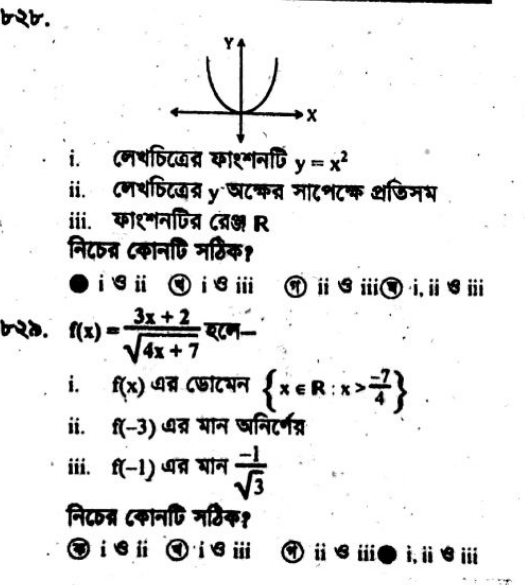 ৮২৮.
Y
X
i. লেখচিত্রের ফাংশনটি y = x²
ii. লেখচিত্রের y অক্ষের সাপেক্ষে প্রতিসম
iii. ফাংশনটির রেঞ্জ R
নিচের কোনটি সঠিক?
● i ও ii ⓴খ i ও iii গ ii ও iii ঘ i, ii ও iii
৮২৯. f(x) = (3x + 2)/√(4x + 7) হলে—
i. f(x) এর ডোমেন {x ∈ R : x > -7/4}
ii. f(–3) এর মান অনির্ণেয়
iii. f(–1) এর মান -1/√3
নিচের কোনটি সঠিক?
ক i ও ii খ i ও iii গ ii ও iii ● i, ii ও iii